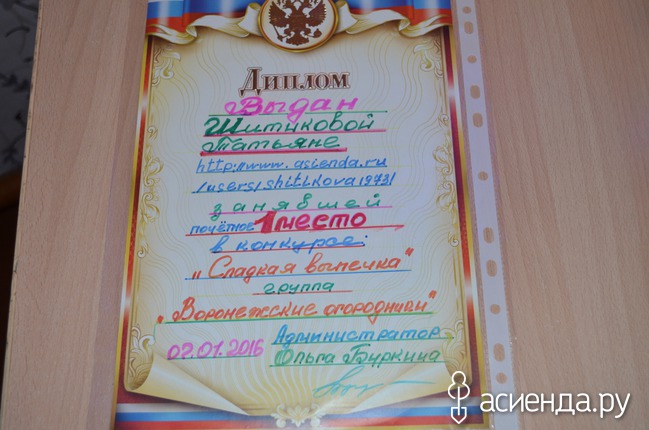 Диплом
Выдан
Шитиковой
Татьяне
http://www.asienda.ru
/users/shitikova1973/
занявшей
почётное 1 место
в конкурсе:
"Сладкая выпечка"
группа
"Воронежские огородники"
Администратор
07.01.2016 Ольга Буркина
асиенда.ру